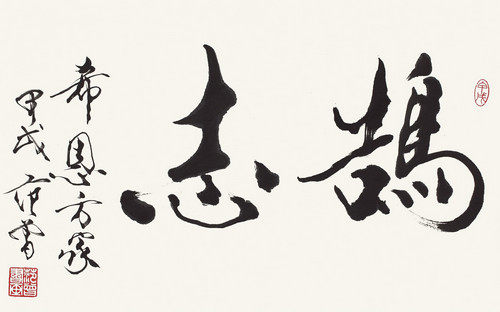 鵠志
希恩方家
甲戌 范曾